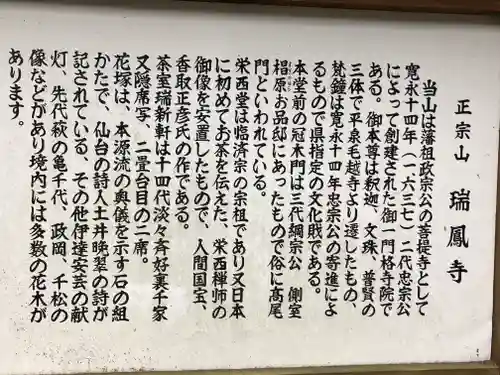 正宗山 瑞鳳寺
当山は藩祖政宗公の菩提寺として
寛永十四年（一六三七）二代忠宗公
によって創建された御一門格寺院で
ある。御本尊は釈迦、文珠、普賢の
三体で平泉毛越寺より遷したもの、
梵鐘は寛永十四年忠宗公の寄進によ
るもので県指定の文化賎である。
本堂前の冠木門は三代綱宗公 側室
椙原お品邸にあったもので俗に高尾
門といわれている。
栄西堂は臨済宗の宗祖であり又日本
に初めてお茶を伝えた、栄西禅師の
御像を安置したもので、人間国宝、
香取正彦氏の作である。
茶室瑞新軒は十四代淡々斉好裏千家
又隠席写、二畳台目の二席。
花塚は、本源流の奥儀を示す石の組
かたで、仙台の詩人土井晩翠の詩が
記されている、その他伊達安芸の献
灯、先代萩の亀千代、政岡、千松の
像などがあり境内には多数の花木が
あります。